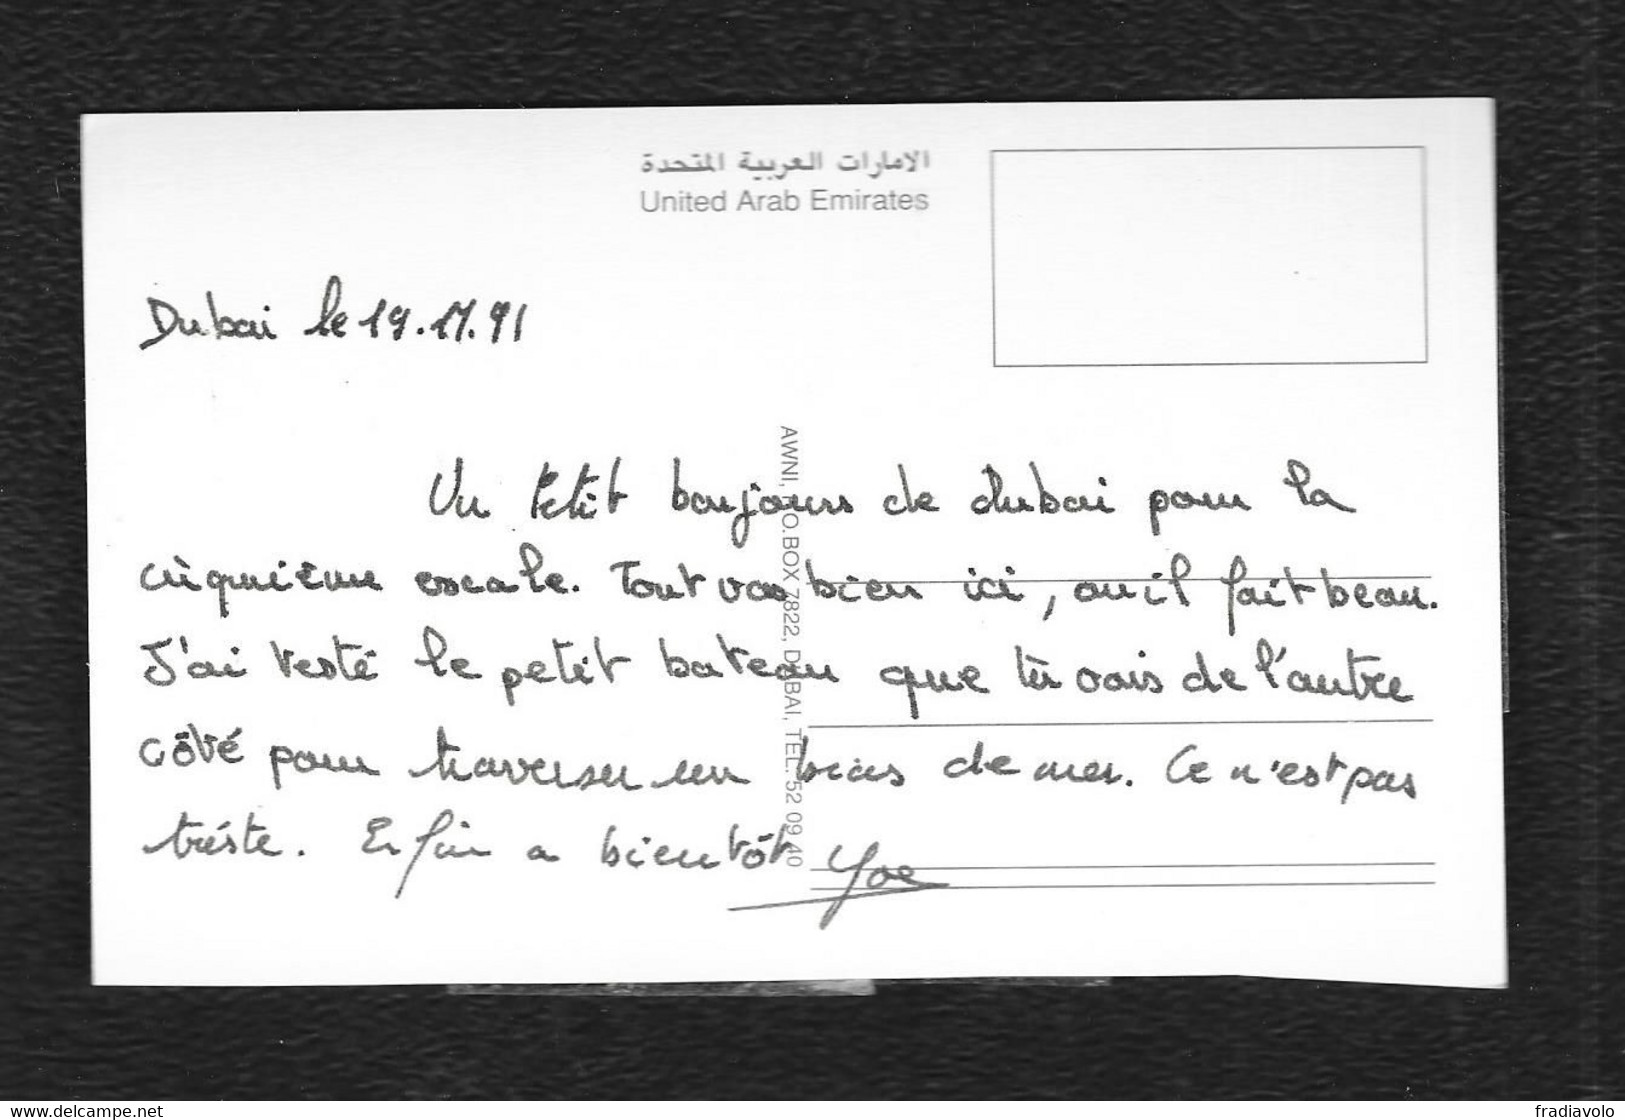 الامارات العربية المتحدة
United Arab Emirates
Dubai le 19.11.91
Un petit boujours de dubai pour la
ciquième escale. Tout vas bien ici, ou il fait beau.
J'ai testé le petit bateau que tu vois de l'autre
côté pour traverser un bras de mer. Ce n'est pas
triste. Enfin a bientôt Yoe
AWNI, P.O.BOX 7822, DUBAI, TEL. 52 09 40
www.delcampe.net
fradiavolo